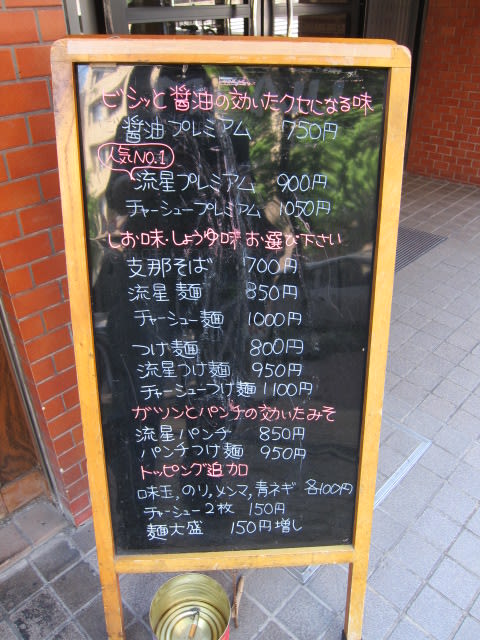 ビシッと醤油の効いたクセになる味
醤油プレミアム 750円
人気NO.1
流星プレミアム 900円
チャーシュープレミアム 1050円
しお味・しょうゆ味 お選び下さい
支那そば 700円
流星麺 850円
チャーシュー麺 1000円
つけ麺 800円
流星つけ麺 950円
チャーシューつけ麺 1100円
ガツンとパンチの効いたみそ
流星パンチ 850円
パンチつけ麺 950円
トッピング追加
味玉,のリ,メンマ,青ネギ 各100円
チャーシュー2枚 150円
麺大盛 150円増し